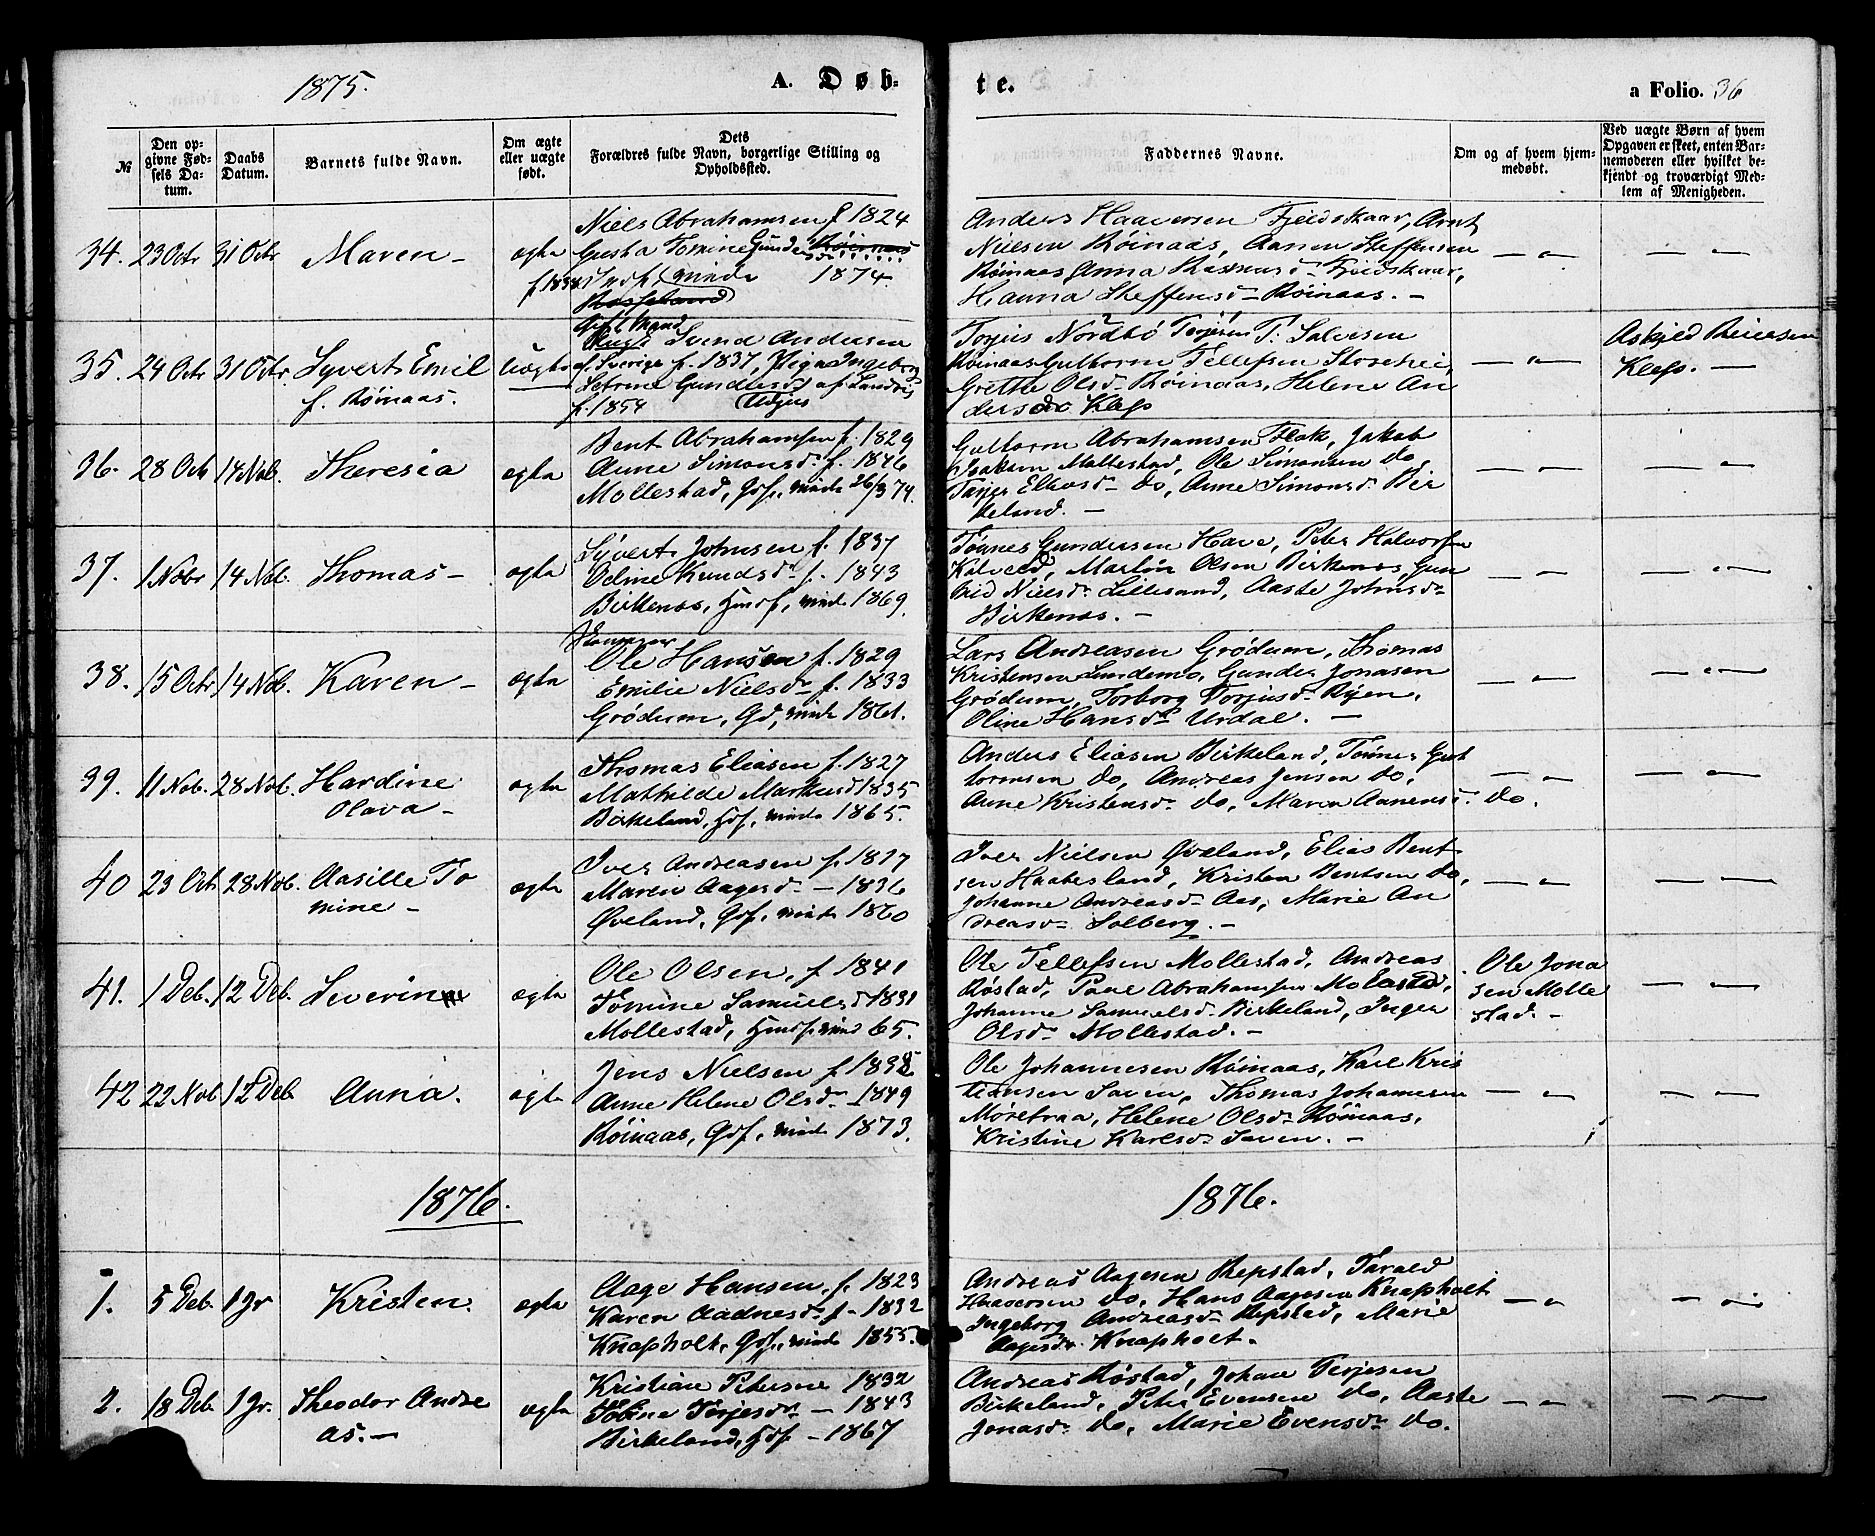 1875.
A. Døb-
te.
a Folio. 36
№
Den opgivne Fødsels Datum.
Daabs Datum.
Barnets fulde Navn.
Om ægte eller uægte født.
Dets Forældres fulde Navn, borgerlige Stilling og Opholdssted.
Faddernes Navne.
Om og af hvem hjemmedøbt.
Ved uægte Børn af hvem Opgaven er skeet, enten Barnemoderen eller hvilket bekjendt og troværdigt Medlem af Menigheden.
34. 23 Octr 31 Octr Maren – ægte
Niels Abrahamsen f. 1824
Gusta Tomine Gundersd. Röinaas
f. 1838 Indf. minde 1874.
Rosseland
Anders Haaversen Fjeldskaar, Arnt
Nielsen Röinaas, Aanen Steffensen
Röinaas Anna Rasmusd. Fjeldskaar,
Hanna Steffensd. Röinaas. –
35. 24 Octr 31 Octr. Syvert Emil uægte
f. Röinaas.
Gift Mand
Svend Andersen
af Sverige f. 1837, Pige Ingeborg
Petrine Gundersd. af Landvig
f. 1854
Torjus Nordbö Terjesen T. Salvesen
Röinaas Guttorm Tellefsen Storehei,
Grethe Olsd. Röinaas, Helene An
dersd. Kleps
Askjed Reiersen
Kleps. –
36. 28 Octr 14 Nob. Theresia ægte
Bent Abrahamsen f. 1829
Anne Simonsd. f. 1846
Mollestad, Gdf., minde 26/3 74.
Guttorm Abrahamsen Flak, Jakob
Isaksen Mollestad, Ole Simonsen do,
Tarjer Ellevsd. do, Anne Simonsd. Bir
keland. –
37. 1 Nobr 14 Nob. Thomas – ægte
Syvert Johnsen f. 1837
Odine Knudsd. f. 1843
Birkenæs, Hmdf., minde 1869.
Tönnes Gundersen Have, Peter Halvorsen
Kalveld, Martin Olsen Birkenes Gun
hild Nielsd. Lillesand, Aaste Johnsd.
Birkenæs. –
38. 15 Octr 14 Nob. Karen – ægte
Ole Hansen f. 1829
Emilie Nielsd. f. 1833
Grödum, Gd, minde 1861.
Lars Andreasen Grödum, Thomas
Kristensen Lundemo, Gunder Jonasen
Grödum, Torborg Torjusd. Rÿen,
Oline Hansd. Urdal. –
39. 11 Nob. 28 Nob. Hardine ægte
Olava –
Thomas Eliasen f. 1827
Mathilde Markusd 1835
Birkeland, Hdf., minde 1865.
Anders Eliasen Birkeland, Tönnes Gut
tormsen do, Andreas Jensen do,
Anne Kristensd. do, Maren Aanensd. do.
40 23 Octr 28 Nob. Aasille To ægte
mine –
Iver Andreasen f. 1827
Maren Aagesd. – 1836
Øveland, Gdf., minde 1860
Iver Nielsen Øveland, Elias Bent
sen Haabesland, Kristen Bentsen do,
Johanne Andreasd. Aas, Marie An
dreasd. Solberg. –
41. 1 Deb. 12 Deb. Severine ægte
Ole Olsen, f. 1841
Tomine Samuelsd 1831
Mollestad, Hmdf. minde 65.
Ole Tellefsen Mollestad, Andreas
Röstad, Paul Abrahamsen Molestad,
Johanne Samuelsd. Birkeland, Inger
Olsd. Mollestad. –
Ole Jona
sen Molle
stad. –
42 22 Nob 12 Deb Anna. ægte
Jens Nielsen f. 1838
Anne Helene Olsd. – 1849
Röinaas, Gdf., minde 1873.
Ole Johannesen Röinaas, Karl Kris
tiansen Saven, Thomas Johannesen
Moretraa, Helene Olsd. Röinaas,
Kristine Karlsd. Saven. –
1876.
1876.
1. 5 Deb. 1 Jr Kristen. ægte
Aage Hansen, f. 1823
Karen Aadnesd. f – 1832
Knapholt, Gdf., minde 1855.
Andreas Aagesen Repstad, Tarald
Haaversen do, Hans Aagesen Knapholt
Ingeborg Andreasd. Repstad, Marie
Aagesd. Knapholt.
2. 18 Deb. 1 Jr. Theodor Andre ægte
as. –
Kristian Petersen 1832
Tobine Terjesd. – 1843
Birkeland, Hdf. – 1867
Andreas Röstad, Johan Terjesen
Birkeland, Peter Evensen do, Aaste
Jonasd. do, Marie Evensd. do.